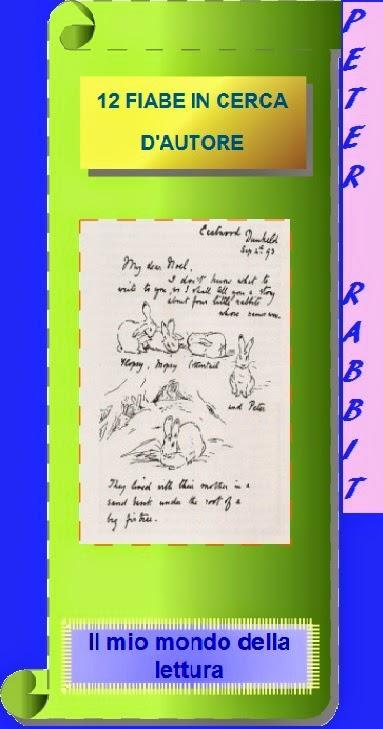 12 FIABE IN CERCA
D'AUTORE
Eastwood Dunkeld
Sep 4th 93
My dear Noel,
I don't know what to
write to you, so I shall tell you a story
about four little rabbits
whose names were
Flopsy, Mopsy Cottontail
and Peter
They lived with their mother in a
sand bank under the root of a
big fir tree.
Il mio mondo della
lettura
PETER RABBIT